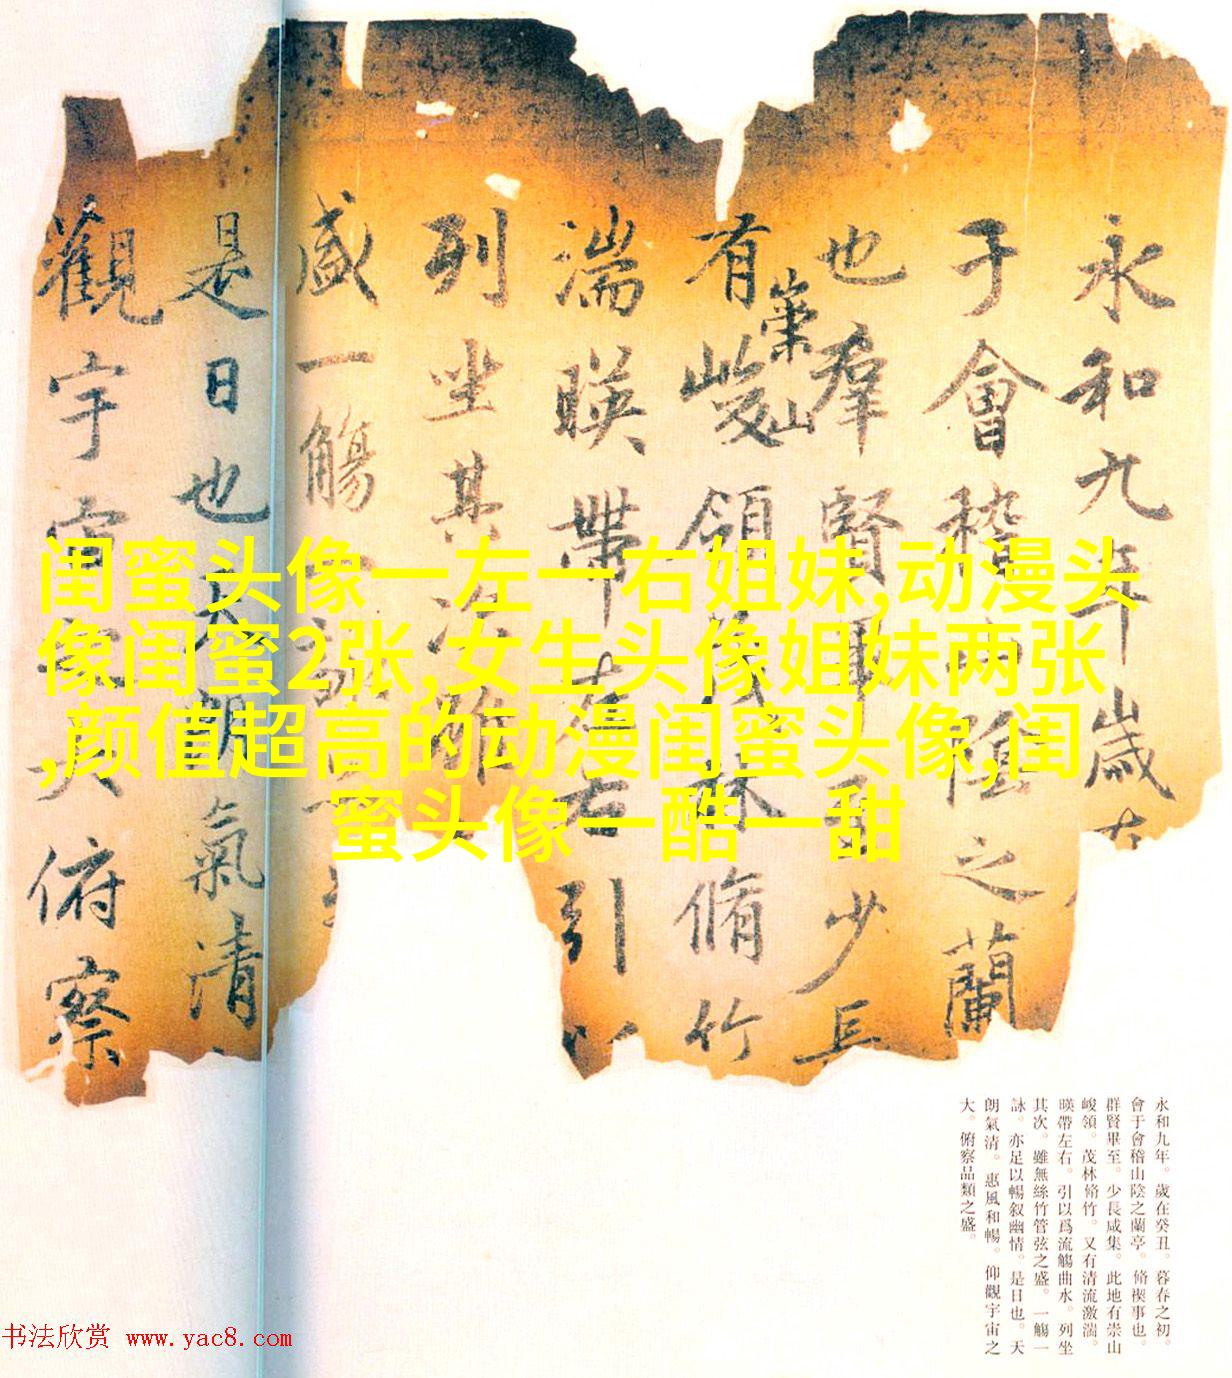 永和九年歲在
于會稽山陰之蘭
也羣賢畢至少長
有崇山峻領茂林脩竹
湍暎帶左右引以
列坐其次雖
盛一觴一詠
是日也天朗氣清
觀宇宙之大俯察
闺蜜头像一左一右姐妹,动漫头
像闺蜜2张,女生头像姐妹两张
,颜值超高的动漫闺蜜头像,闺
蜜头像一酷一甜
永和九年。歲在癸丑。暮春之初。
會于會稽山陰之蘭亭。脩禊事也。
群賢畢至。少長咸集。此地有崇山
峻領。茂林脩竹。又有清流激湍。
暎帶左右。引以爲流觴曲水。列坐
其次。雖無絲竹管弦之盛。一觴一
詠。亦足以暢叙幽情。是日也。天
朗氣清。惠風和暢。仰觀宇宙之
大。俯察品類之盛。
书法欣赏 www.yac8.com